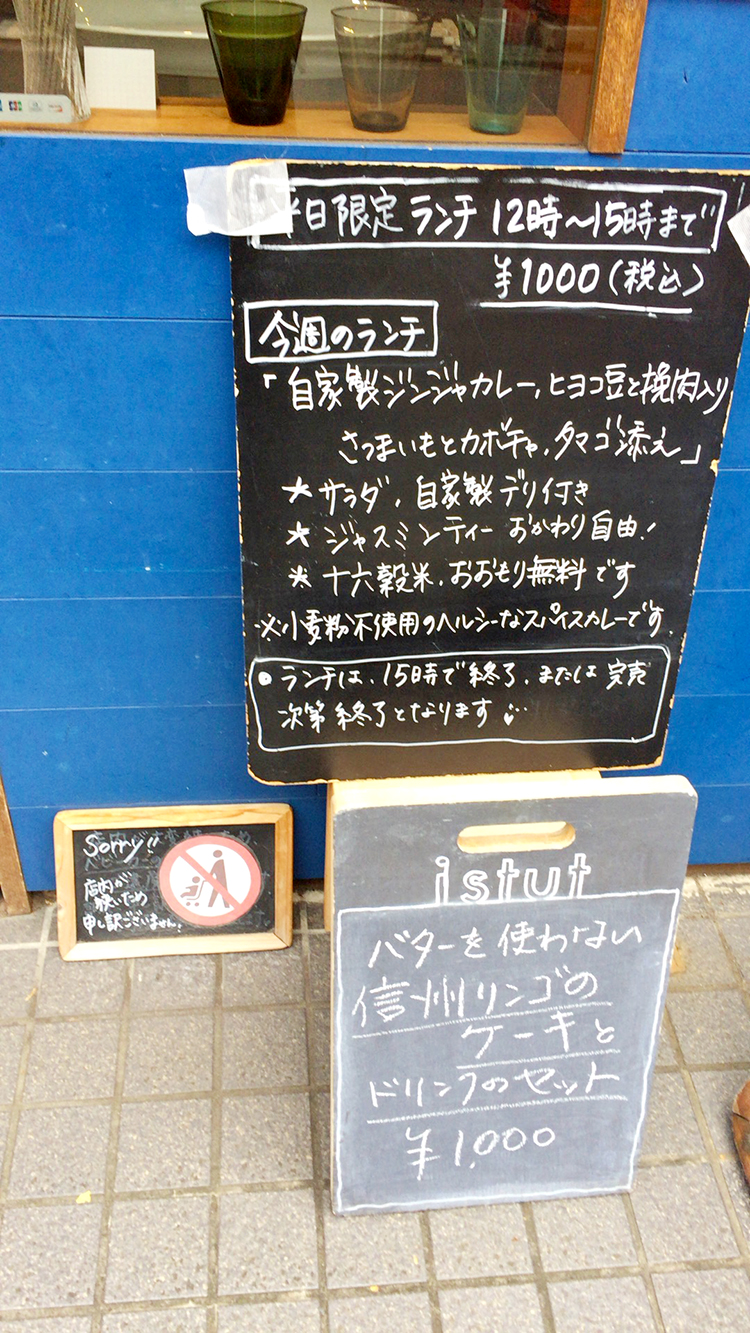 平日限定 ランチ 12時～15時まで
¥1000(税込)
今週のランチ
「自家製ジンジャカレー,ヒヨコ豆と挽肉入り
さつまいもとカボチャ,タマゴ添え」
*サラダ,自家製デリ付き
*ジャスミンティー おかわり自由!
*十六穀米,おおもり無料です
※小麦粉不使用のヘルシーなスパイスカレーです
•ランチは,15時で終了,または完売
次第終了となります
Sorry!!
店内が
狭いため
申し訳ございません。
istut
バターを使わない
信州リンゴの
ケーキと
ドリンクのセット
¥1,000